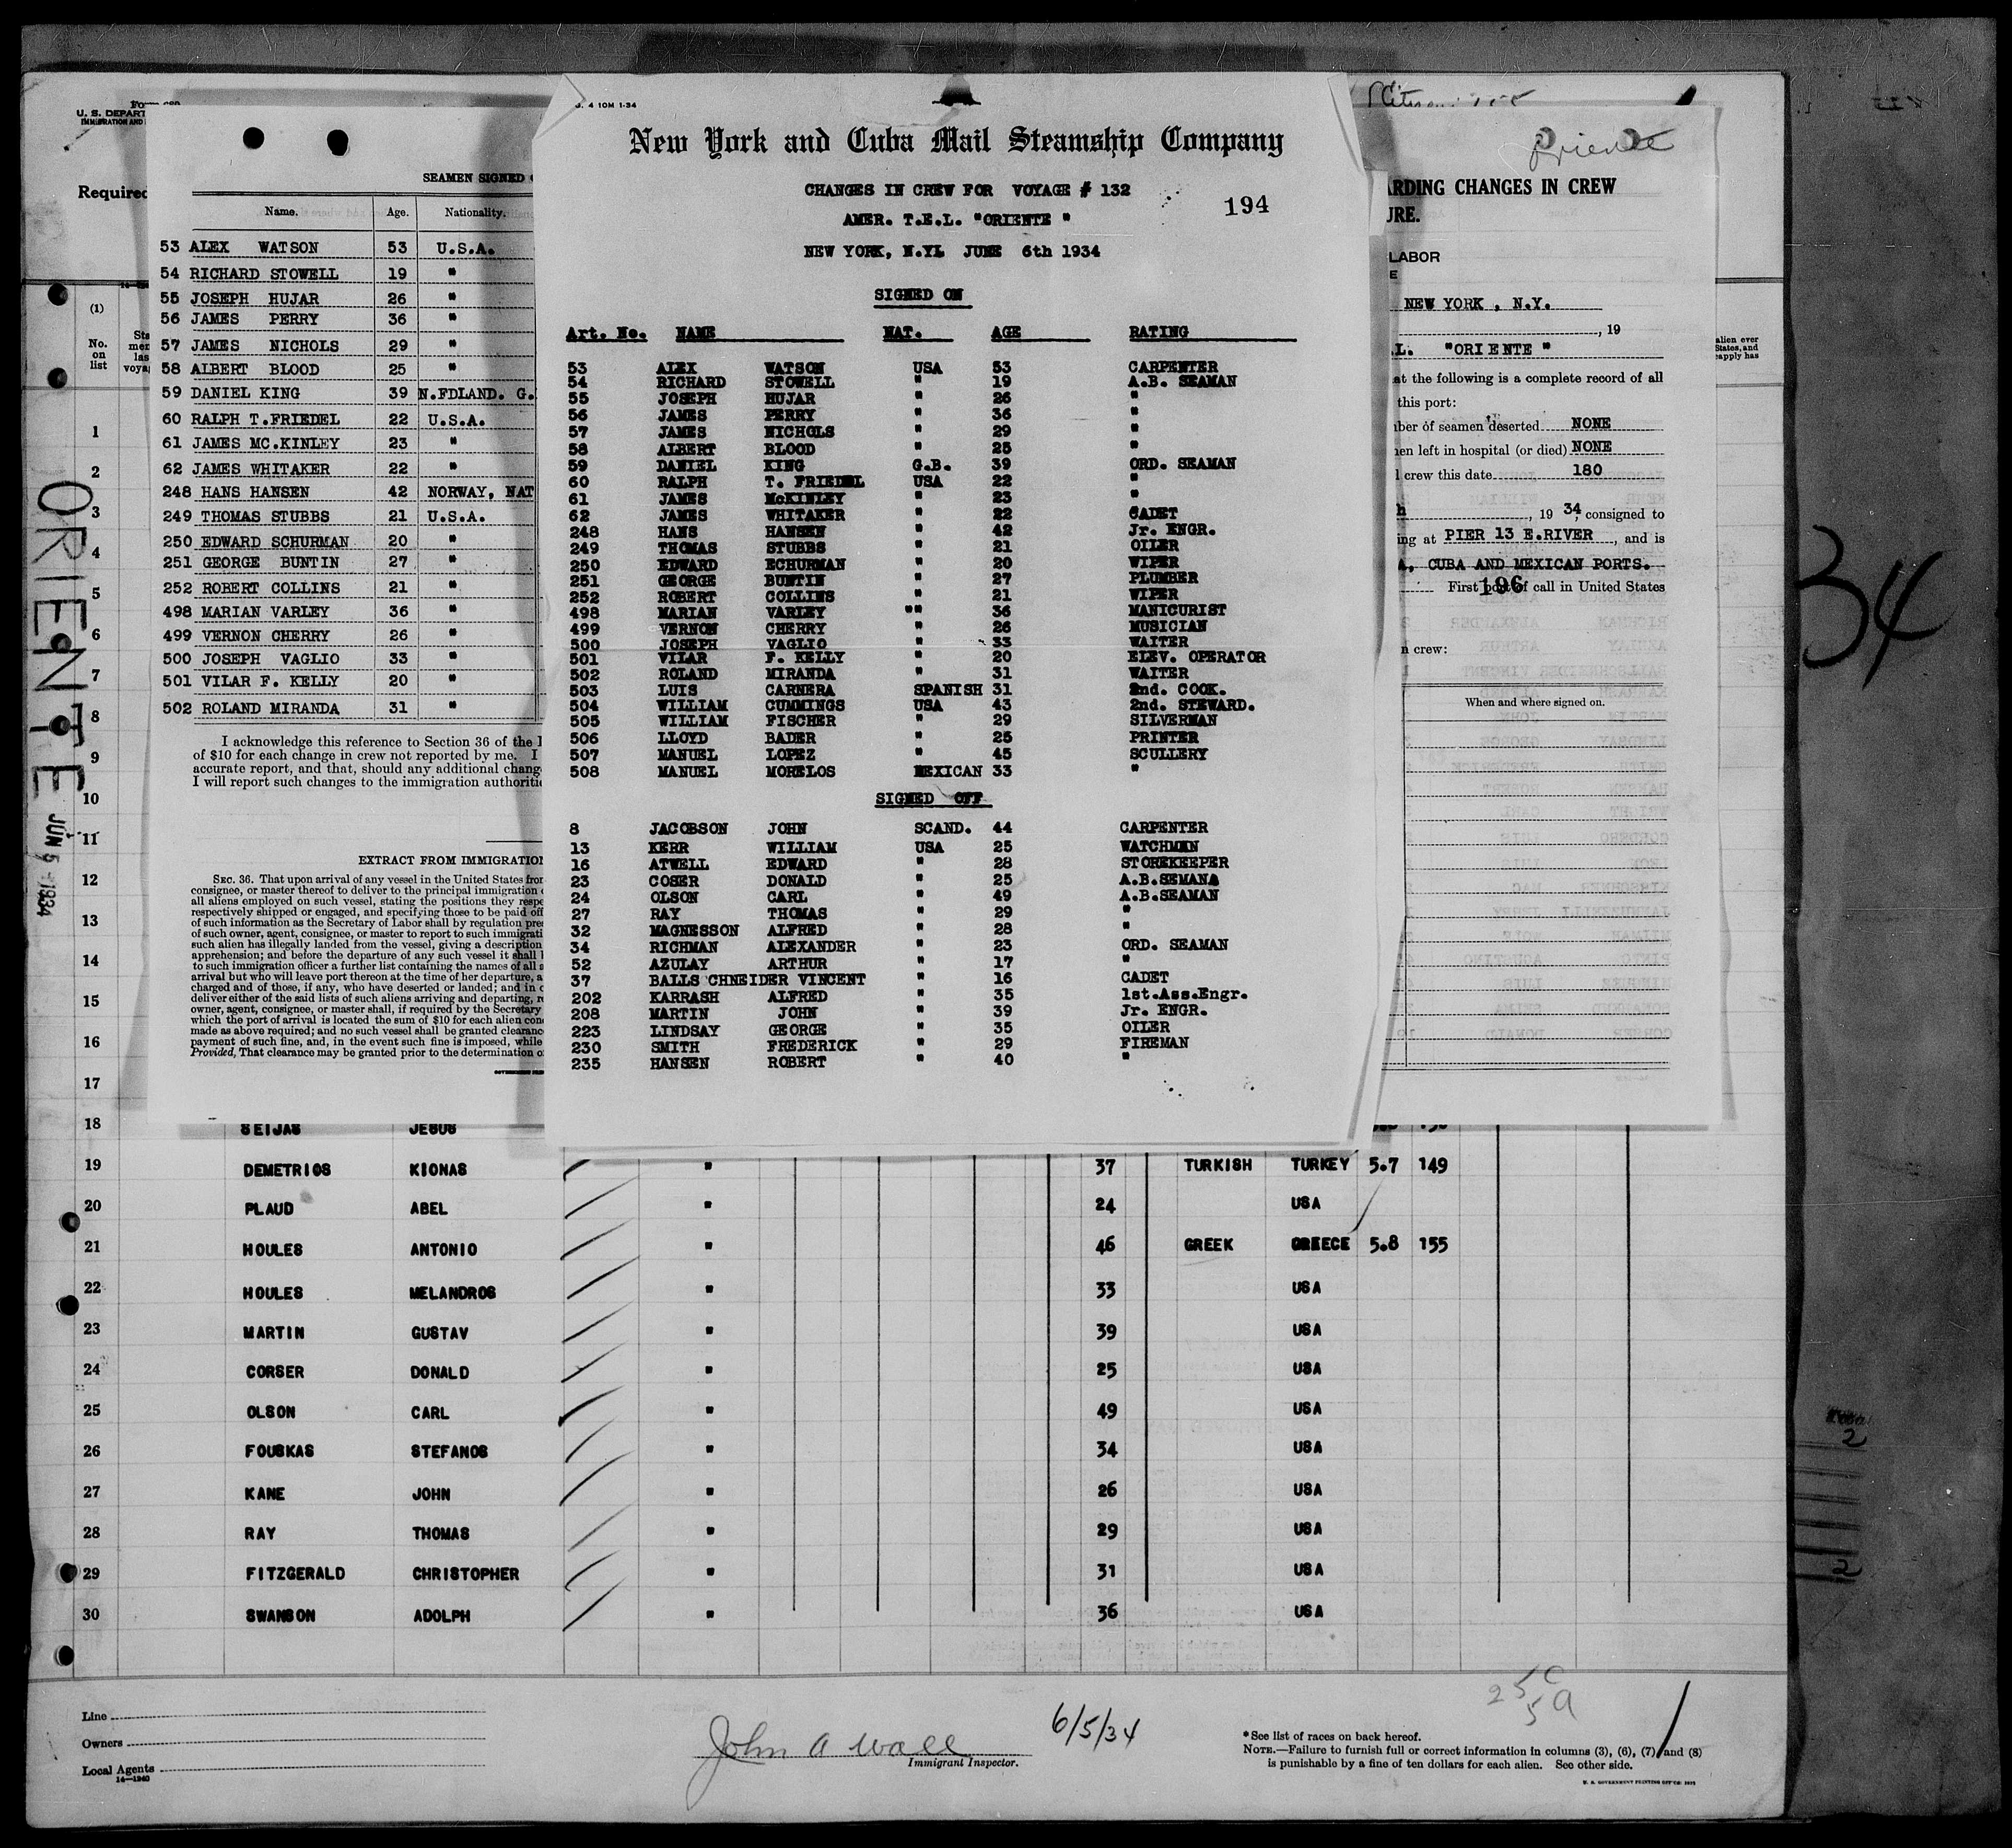 Form 689
U. S. DEPART
IMMIGRATION AND
Required
(1)
No.
on
list
SEAMEN SIGNED
Name. Age. Nationality.
53 ALEX WATSON 53 U.S.A.
54 RICHARD STOWELL 19 "
55 JOSEPH HUJAR 26 "
56 JAMES PERRY 36 "
57 JAMES NICHOLS 29 "
58 ALBERT BLOOD 25 "
59 DANIEL KING 39 N.FDLAND. G.
60 RALPH T.FRIEDEL 22 U.S.A.
61 JAMES MC.KINLEY 23 "
62 JAMES WHITAKER 22 "
248 HANS HANSEN 42 NORWAY, NAT
249 THOMAS STUBBS 21 U.S.A.
250 EDWARD SCHURMAN 20 "
251 GEORGE BUNTIN 27 "
252 ROBERT COLLINS 21 "
498 MARIAN VARLEY 36 "
499 VERNON CHERRY 26 "
500 JOSEPH VAGLIO 33 "
501 VILAR F. KELLY 20 "
502 ROLAND MIRANDA 31 "
I acknowledge this reference to Section 36 of the I
of $10 for each change in crew not reported by me. I
accurate report, and that, should any additional chang
I will report such changes to the immigration authoritie
EXTRACT FROM IMMIGRATION
SEC. 36. That upon arrival of any vessel in the United States from
consignee, or master thereof to deliver to the principal immigration
all aliens employed on such vessel, stating the positions they respe
respectively shipped or engaged, and specifying those to be paid off
of such information as the Secretary of Labor shall by regulation pre
of such owner, agent, consignee, or master to report to such immigrati
such alien has illegally landed from the vessel, giving a description
apprehension; and before the departure of any such vessel it shall
to such immigration officer a further list containing the names of all
arrival but who will leave port thereon at the time of her departure, a
charged and of those, if any, who have deserted or landed; and in c
deliver either of the said lists of such aliens arriving and departing, r
owner, agent, consignee, or master, shall, if required by the Secretary
which the port of arrival is located the sum of $10 for each alien con
made as above required; and no such vessel shall be granted clearanc
payment of such fine, and, in the event such fine is imposed, while
Provided, That clearance may be granted prior to the determination o
4 10M 1-34
New York and Cuba Mail Steamship Company
CHANGES IN CREW FOR VOYAGE # 132
194
AMER. T.E.L. "ORIENTE "
NEW YORK, N.YL JUNE 6th 1934
SIGNED ON
Art. No. NAME NAT. AGE RATING
53 ALEX WATSON USA 53 CARPENTER
54 RICHARD STOWELL " 19 A.B. SEAMAN
55 JOSEPH HUJAR " 26 "
56 JAMES PERRY " 36 "
57 JAMES NICHOLS " 29 "
58 ALBERT BLOOD " 25 "
59 DANIEL KING G.B. 39 ORD. SEAMAN
60 RALPH T. FRIEDEL USA 22 "
61 JAMES McKINLEY " 23 "
62 JAMES WHITAKER " 22 CADET
248 HANS HANSEN " 42 Jr. ENGR.
249 THOMAS STUBBS " 21 OILER
250 EDWARD ECHURMAN " 20 WIPER
251 GEORGE BUNTIN " 27 PLUMBER
252 ROBERT COLLINS " 21 WIPER
498 MARIAN VARLEY "" 36 MANICURIST
499 VERNON CHERRY " 26 MUSICIAN
500 JOSEPH VAGLIO " 33 WAITER
501 VILAR F. KELLY " 20 ELEV. OPERATOR
502 ROLAND MIRANDA " 31 WAITER
503 LUIS CARNERA SPANISH 31 2nd. COOK.
504 WILLIAM CUMMINGS USA 43 2nd. STEWARD.
505 WILLIAM FISCHER " 29 SILVERMAN
506 LLOYD BADER " 25 PRINTER
507 MANUEL LOPEZ " 45 SCULLERY
508 MANUEL MORELOS MEXICAN 33 "
SIGNED OFF
8 JACOBSON JOHN SCAND. 44 CARPENTER
13 KERR WILLIAM USA 25 WATCHMAN
16 ATWELL EDWARD " 28 STOREKEEPER
23 COSER DONALD " 25 A.B.SEMANA
24 OLSON CARL " 49 A.B.SEAMAN
27 RAY THOMAS " 29 "
32 MAGNESSON ALFRED " 28 "
34 RICHMAN ALEXANDER " 23 ORD. SEAMAN
52 AZULAY ARTHUR " 17 "
37 BALLS CHNEIDER VINCENT " 16 CADET
202 KARRASH ALFRED " 35 1st.Ass.Engr.
208 MARTIN JOHN " 39 Jr. ENGR.
223 LINDSAY GEORGE " 35 OILER
230 SMITH FREDERICK " 29 FIREMAN
235 HANSEN ROBERT " 40 "
Oriente
ARDING CHANGES IN CREW
URE.
LABOR
E
NEW YORK , N.Y.
, 19
.L. "ORIENTE "
at the following is a complete record of all
this port:
ber of seamen deserted NONE
en left in hospital (or died) NONE
l crew this date 180
h , 19 34, consigned to
ing at PIER 13 E.RIVER , and is
A, CUBA AND MEXICAN PORTS.
196
First port of call in United States
n crew:
When and where signed on.
alien ever
States, and
apply has
34
ORIENTE
JUN 5 1934
1
2
3
4
5
6
7
8
9
10
11
12
13
14
15
16
17
18 SEIJAS JESUS
19 DEMETRIOS KIONAS " 37 TURKISH TURKEY 5.7 149
20 PLAUD ABEL " 24 USA
21 HOULES ANTONIO " 46 GREEK GREECE 5.8 155
22 HOULES MELANDROS " 33 USA
23 MARTIN GUSTAV " 39 USA
24 CORSER DONALD " 25 USA
25 OLSON CARL " 49 USA
26 FOUSKAS STEFANOS " 34 USA
27 KANE JOHN " 26 USA
28 RAY THOMAS " 29 USA
29 FITZGERALD CHRISTOPHER " 31 USA
30 SWANSON ADOLPH " 36 USA
Line
Owners
Local Agents
14—1940
John A Wall
Immigrant Inspector.
6/5/34
25C
5A
*See list of races on back hereof.
NOTE.—Failure to furnish full or correct information in columns (3), (6), (7) and (8)
is punishable by a fine of ten dollars for each alien. See other side.
2
2